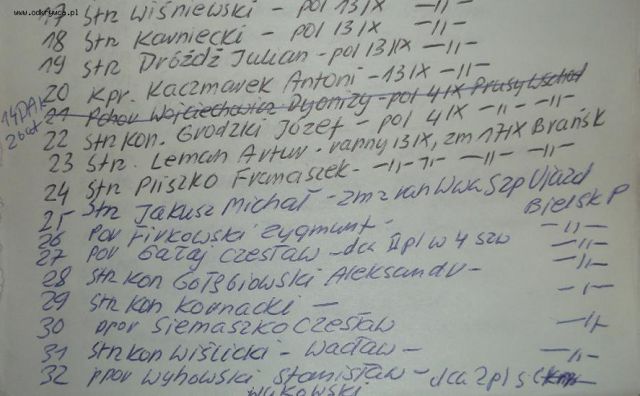 www.odkrywca.pl
17 Str Wiśniewski - pol 13 IX -"-
18 Str Karniecki - pol 13 IX -"-
19 Str Dróżdż Julian - pol 13 IX -"-
20 Kpr. Kaczmarek Antoni - 13 IX -"-
14 DAK 2 bat
21 Pchor Wojciechowicz Dyonizy - pol 4 IX Prusy Wschod
22 Str kon. Grodzki Józef - pol 4 IX -"- -"-
23 Str. Leman Artur - ranny 13 IX, zm 17 IX Brańsk
24 Str Pliszko Franciszek - -"- -"- -"- -"-
25 Str Jakusz Michał - zm z ran Wwa Szp Ujazd
26 por Firkowski Zygmunt - Bielsk P
27 por Gałaj Czesław - dca II pl w 4 szw -"-
28 Str kon Gołębiowski Aleksander - -"-
29 Str kon Kornacki - -"-
30 ppor Siemaszko Czesław
31 Str kon Wiślicki - Wacław - -"-
32 ppor Wyhowski Stanisław - dca 2 pl -"-
Wykowski